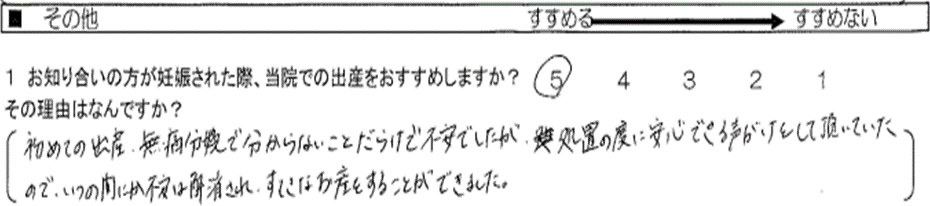 ■ その他 すすめる すすめない
1 お知り合いの方が妊娠された際、当院での出産をおすすめしますか? 5 4 3 2 1
その理由はなんですか?
初めての出産、無痛分娩で分からないことだらけで不安でしたが、処置の度に安心できる声がけをして頂いていた
ので、いつの間にか不安は解消され、すてきなお産をすることができました。